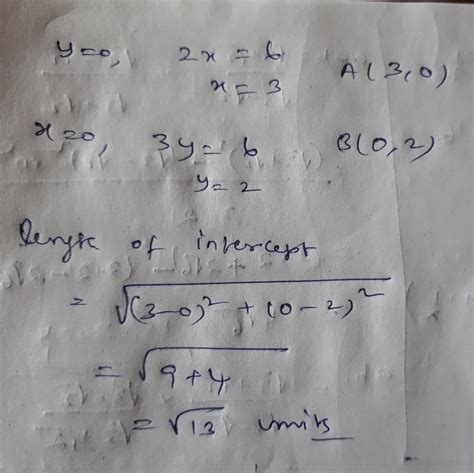 y=0, 2x = 6
x = 3 A(3,0)
x=0, 3y= 6 B(0,2)
y= 2
Length of intercept
= √(3-0)² + (0-2)²
= √9+4
= √13 units